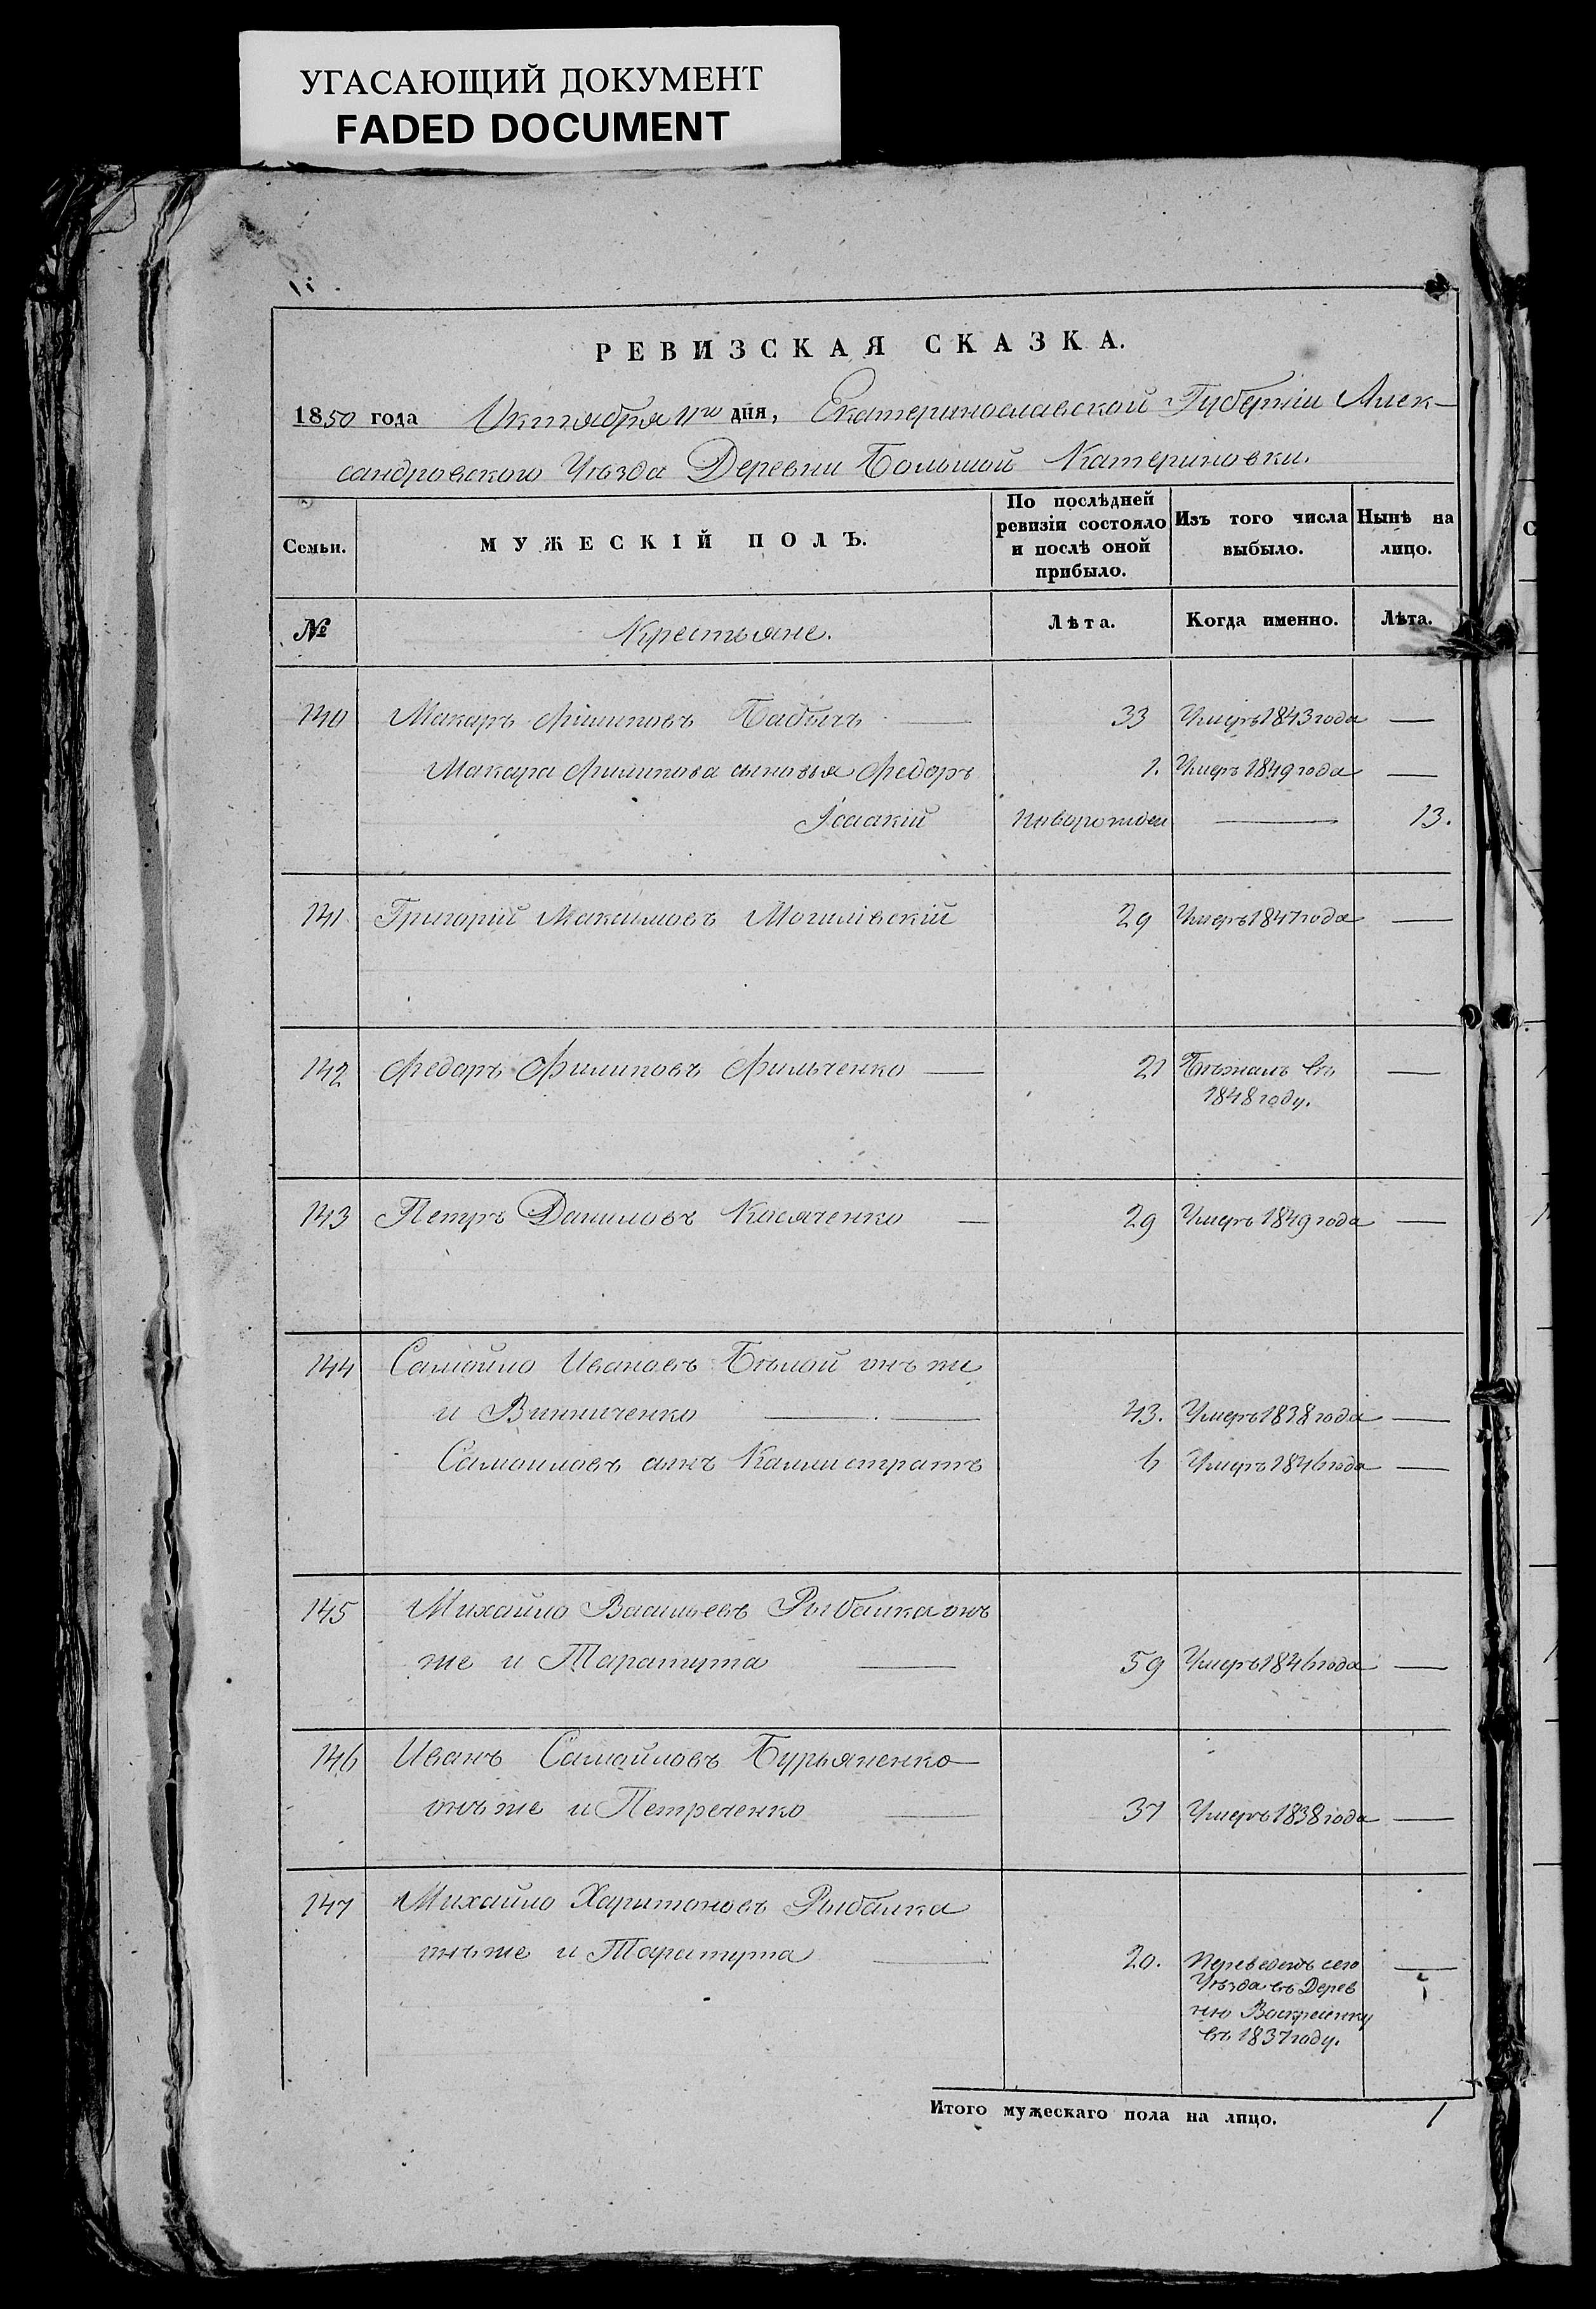 УГАСАЮЩИЙ ДОКУМЕНТ
FADED DOCUMENT
РЕВИЗСКАЯ СКАЗКА.
1850 года Октября 11го дня, Екатеринославской Губерніи Алек-
сандровского Уѣзда Деревни Большой Катериновки.
Семьи.
МУЖЕСКІЙ ПОЛЪ.
По послѣдней ревизіи состояло и послѣ оной прибыло.
Изъ того числа выбыло.
Нынѣ на лицо.
№ Крестьяне. Лѣта. Когда именно. Лѣта.
140 Макаръ Филиповъ Бабычъ — 33 Умеръ 1843 года —
Макара Филипова сыновья Федоръ 1. Умеръ 1849 года —
Ісаакій новорожден — 13.
141 Григорій Максимовъ Могилівскій 29 Умеръ 1847 года —
142 Федоръ Филиповъ Фильченко — 21 Бѣжалъ въ —
1848 году.
143 Петръ Даниловъ Касяченко — 29 Умеръ 1849 года —
144 Самойло Ивановъ Бѣлой онъ же
и Винниченко — — 43. Умеръ 1838 года —
Самоиловъ сынъ Каллистратъ 6 Умеръ 1846 года —
145 Михайло Васильевъ Рыбалка онъ
же и Таратута — 59 Умеръ 1846 года —
146 Иванъ Самойловъ Бурьяненко
онъ же и Петреченко — 37 Умеръ 1838 года —
147 Михайло Харитоновъ Рыбалка
онъ же и Таратута — 20. Переведенъ сего —
Уѣзда въ Дерев
ню Воскресенку
въ 1837 году.
Итого мужескаго пола на лицо. 1